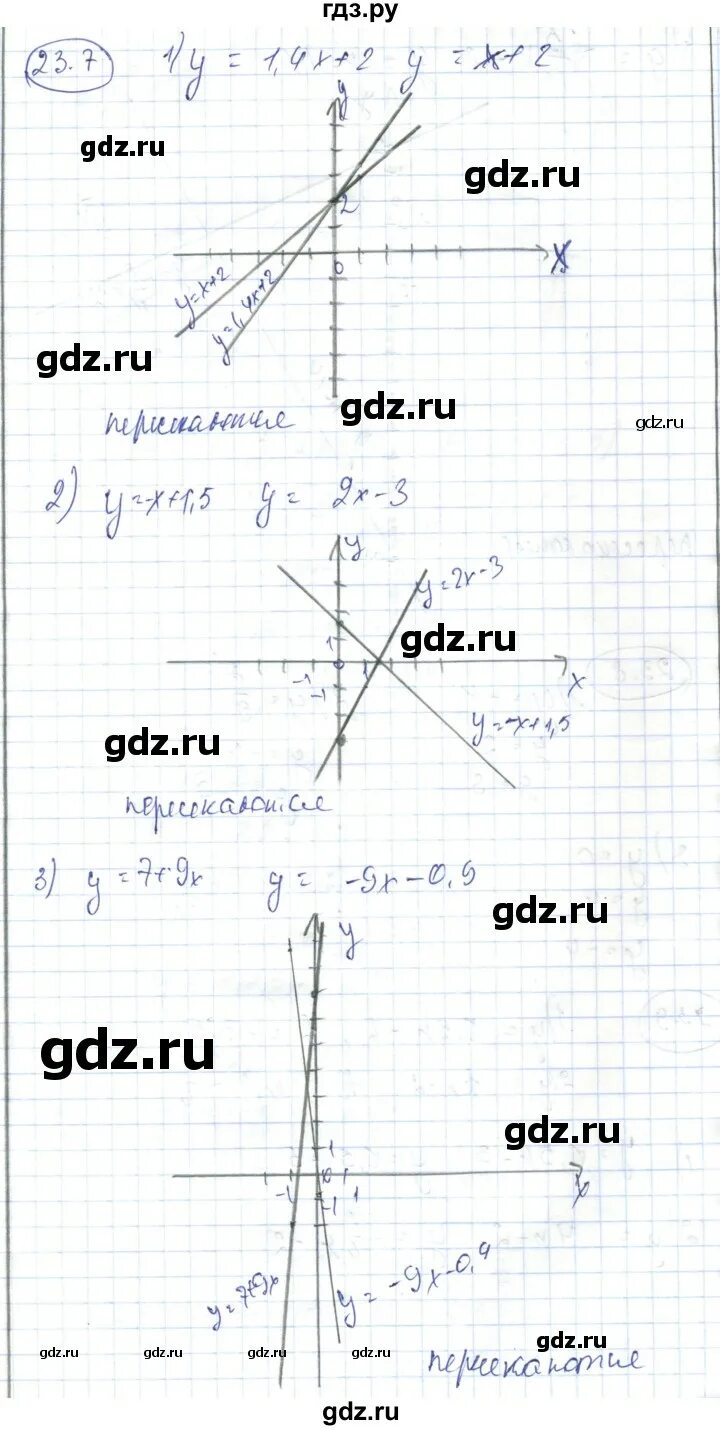 гдз.ру
23.7 1) y = 1,4x+2 y = x+2
y
gdz.ru
gdz.ru
2
0 x
y=x+2
y=1,4x+2
gdz.ru
gdz.ru
gdz.ru
2) y=-x+1,5 y = 2x-3
y
y=2x-3
gdz.ru
1
0
-1 1
-1
x
y=-x+1,5
gdz.ru
пересекаются
3) y = 7+9x y = -9x-0,9
gdz.ru
y
gdz.ru
gdz.ru
1
0
-1 -1 1
x
y=7+9x
y = -9x-0,9
gdz.ru gdz.ru gdz.ru gdz.ru
gdz.ru